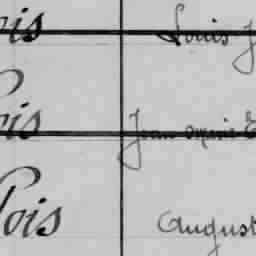 ois Louis J
ois Jean Marie E
lois August